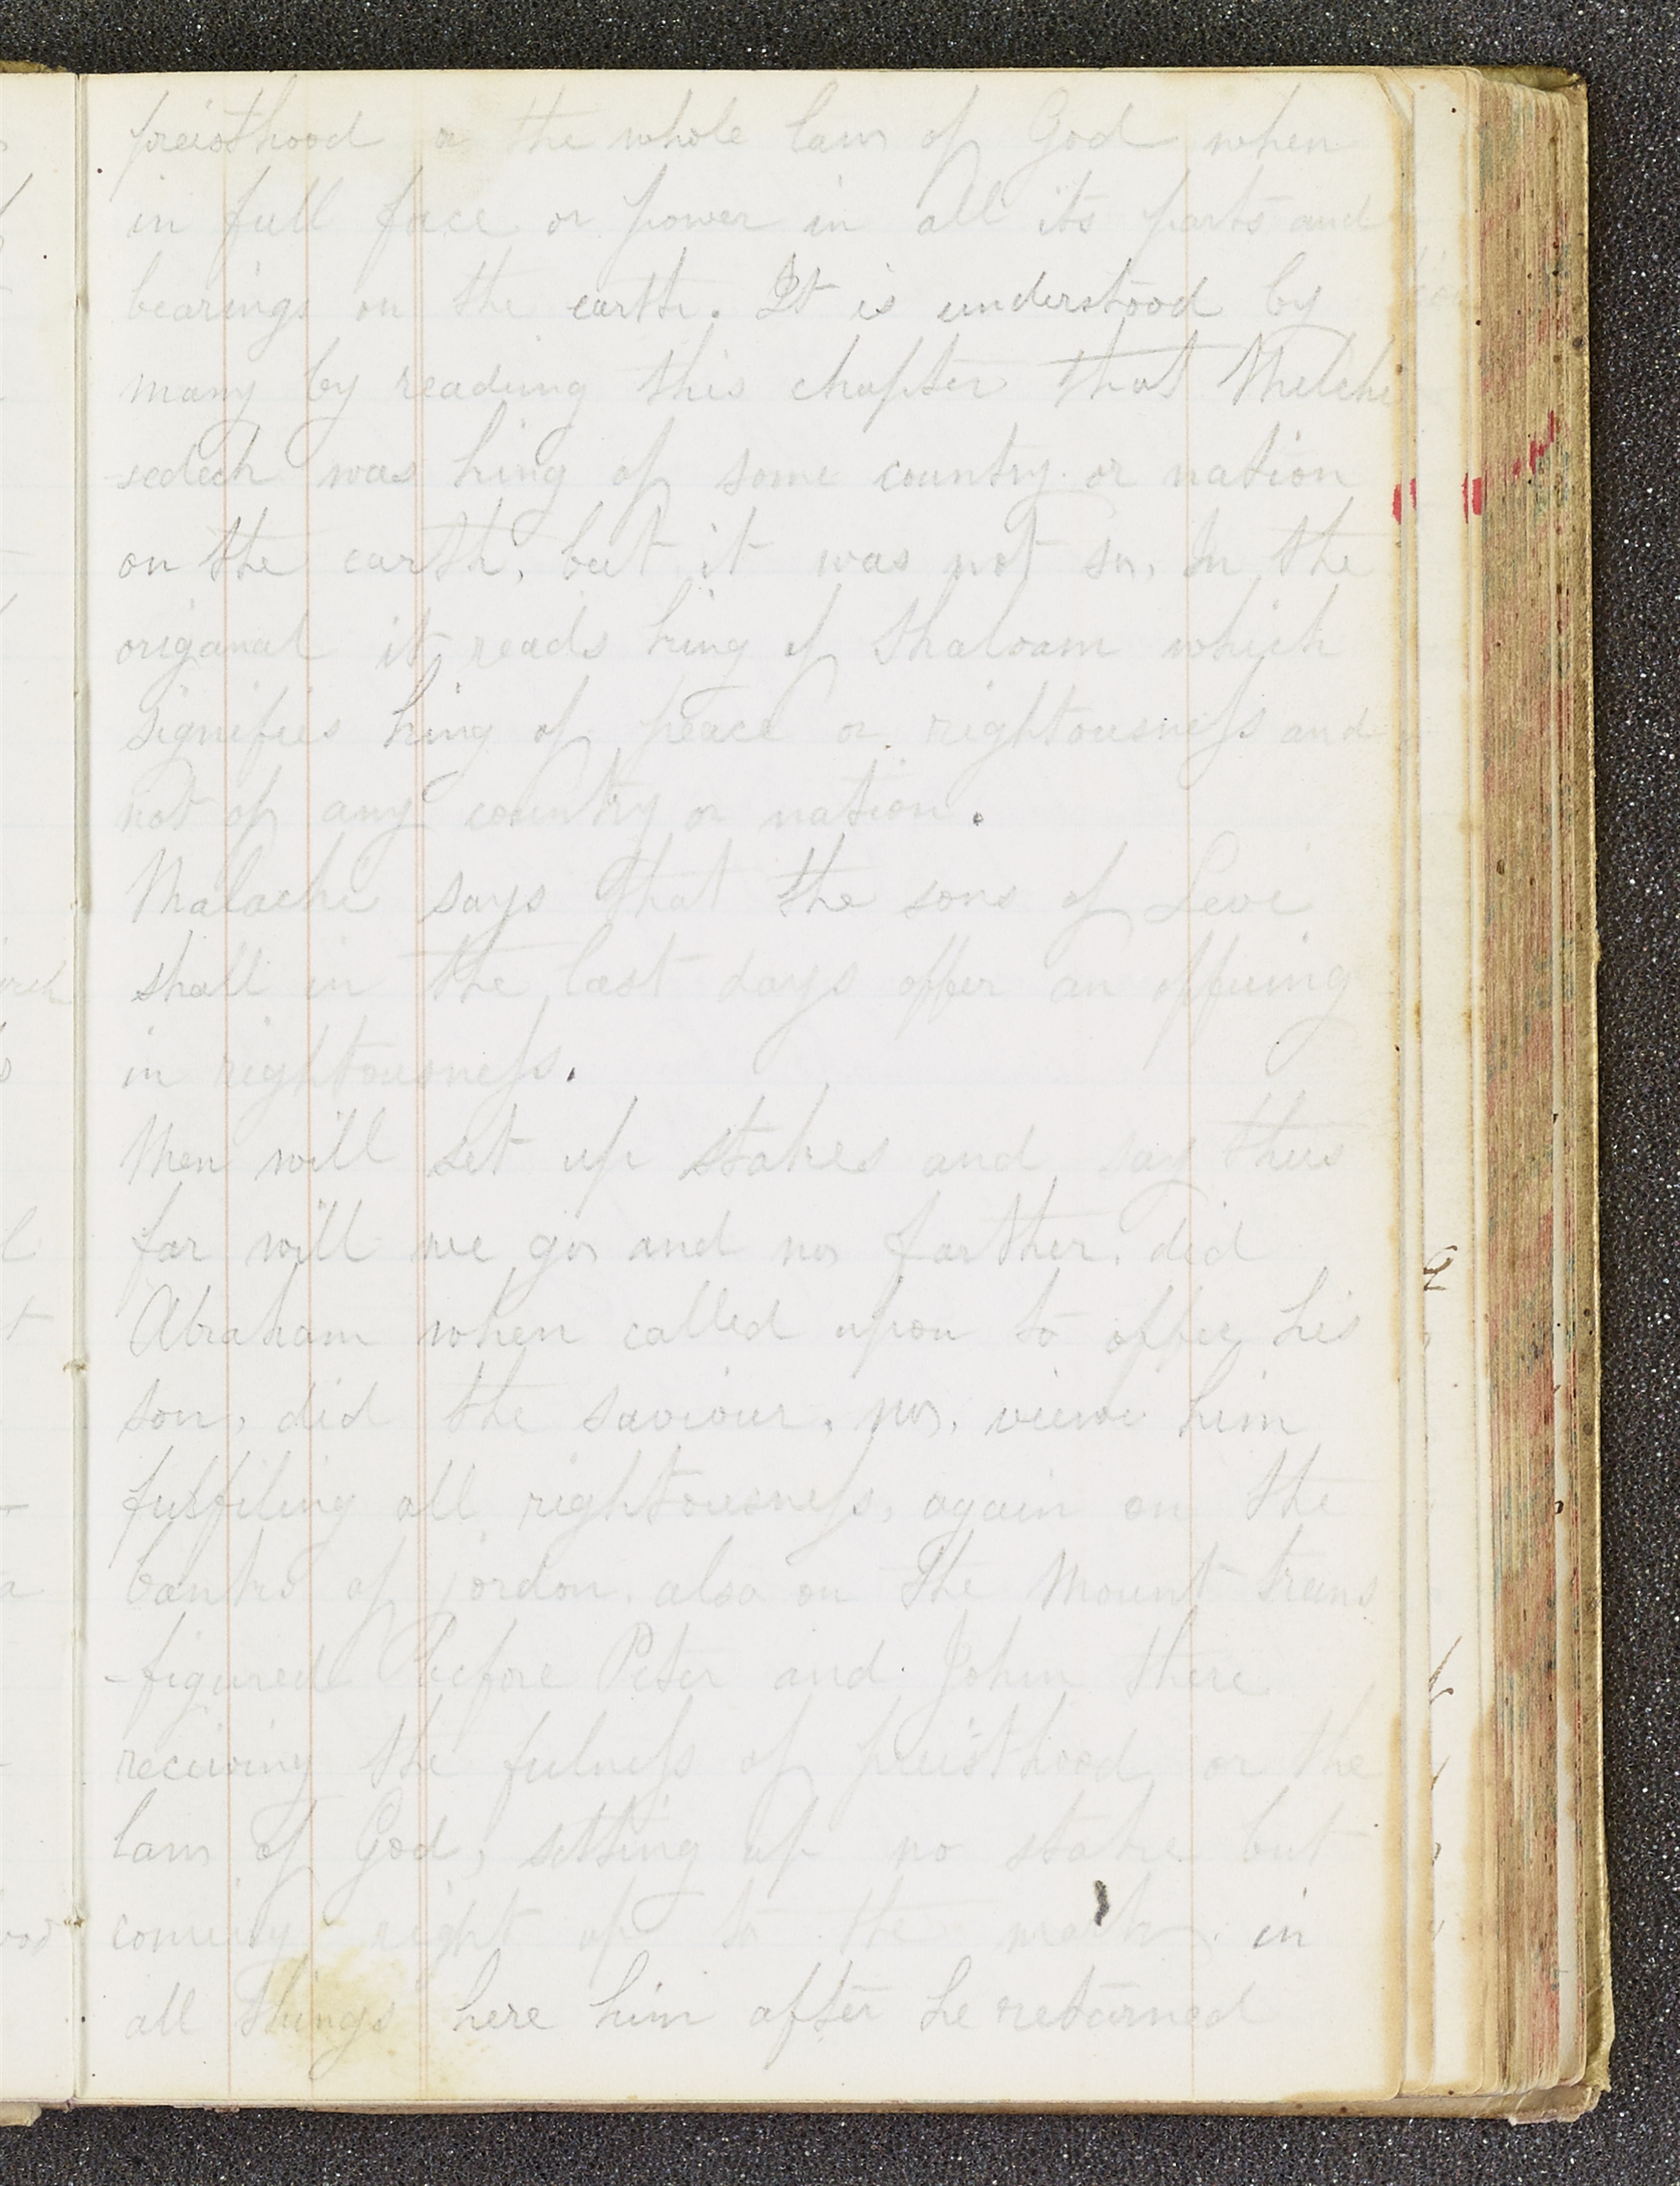 preisthood or the whole law of God when
in full face or power in all its parts and
bearings on the earth. It is understood by
many by reading this chapter that Melchi
sedech was king of some country or nation
on the earth, but it was not so, In the
origanal it reads king of Shaloam which
signifies king of peace or rightousness and
not of any country or nation.
Malachi says that the sons of Levi
shall in the last days offer an offering
in rightousness.
Men will set up stakes and say thus
far will we go and no farther, did
Abraham when called upon to offer his
son, did the saviour, no, view him
fulfiling all rightousness, again on the
banks of jordon, also on the Mount trans
-figured before Peter and John there
receiving the fulness of preisthood or the
law of God, setting up no stake but
coming right up to the mark in
all things here him after he returned